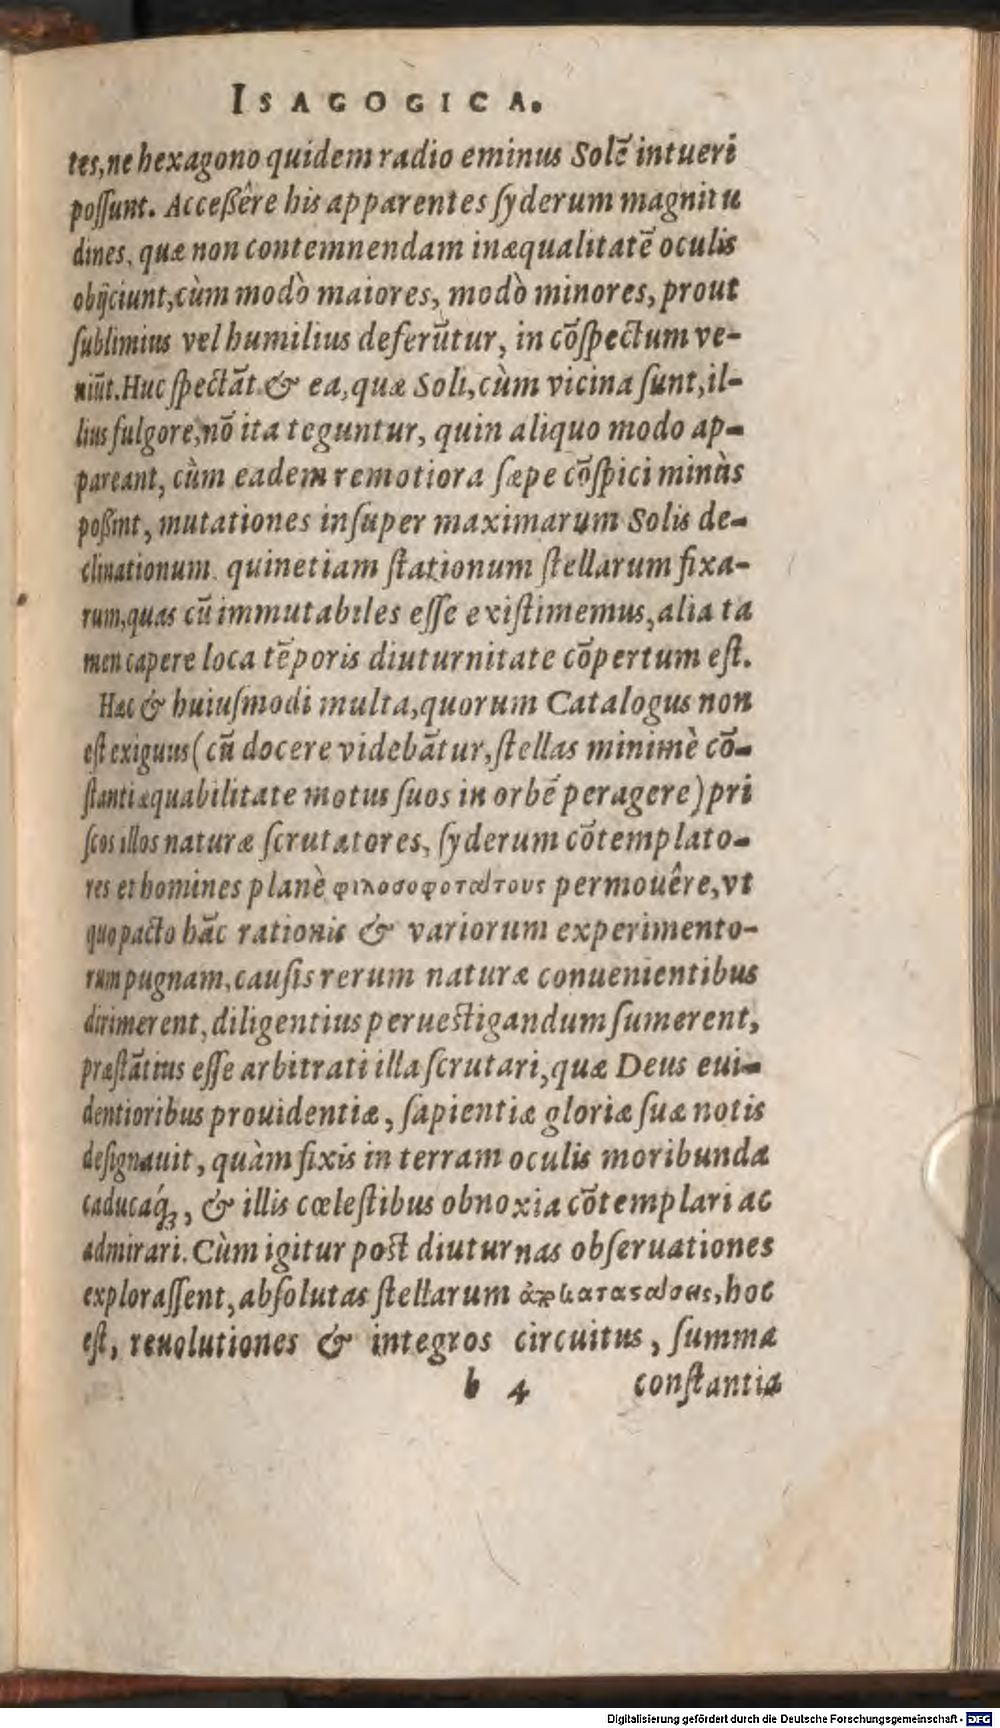 ISAGOGICA.
tes, ne hexagono quidem radio eminus Solẽ intueri
possunt. Acceßêre his apparentes syderum magnitu
dines, quæ non contemnendam inæqualitatẽ oculis
obijciunt, cùm modò maiores, modò minores, prout
sublimius vel humilius deferũtur, in cõspectum ve-
niũt. Huc spectãt & ea, quæ Soli, cùm vicina sunt, il-
lius fulgore, nõ ita teguntur, quin aliquo modo ap-
pareant, cùm eadem remotiora sæpe cõspici minùs
poßint, mutationes insuper maximarum Solis de-
clinationum. quinetiam stationum stellarum fixa-
rum, quas cũ immutabiles esse existimemus, alia ta
men capere loca tẽporis diuturnitate cõpertum est.
Hæc & huiusmodi multa, quorum Catalogus non
est exiguus (cũ docere videbãtur, stellas minimè cõ-
stanti æquabilitate motus suos in orbẽ peragere) pri
scos illos naturæ scrutatores, syderum cõtemplato-
res et homines planè φιλοσοφοτάτους permouêre, vt
quo pacto hãc rationis & variorum experimento-
rum pugnam, causis rerum naturæ conuenientibus
dirimerent, diligentius peruestigandum sumerent,
præstãtius esse arbitrati illa scrutari, quæ Deus eui-
dentioribus prouidentiæ, sapientiæ gloriæ suæ notis
designauit, quàm fixis in terram oculis moribunda
caducaq́;, & illis cœlestibus obnoxia cõtemplari ac
admirari. Cùm igitur post diuturnas obseruationes
explorassent, absolutas stellarum hoc
est, reuolutiones & integros circuitus, summa
b 4 constantia
Digitalisierung gefördert durch die Deutsche Forschungsgemeinschaft - DFG